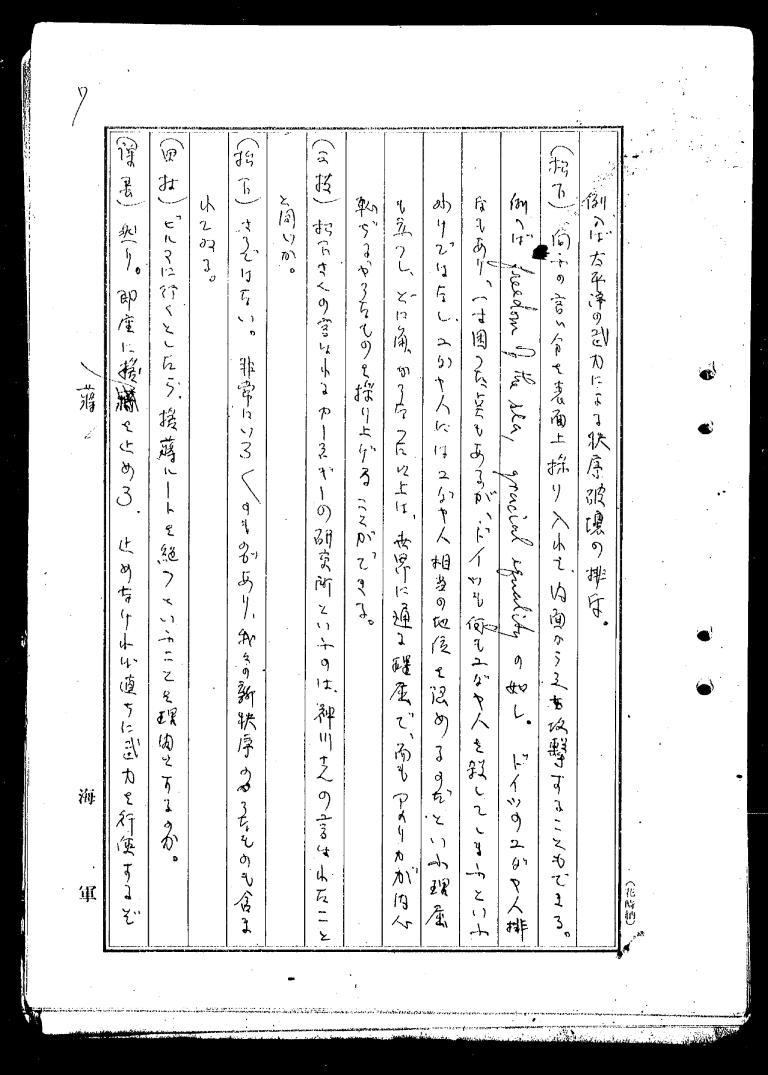 例へば太平洋の武力による秩序破壊の排斥。
(松下) 向ふの言ひ分を表面上採り入れて、内面から之を攻撃することもできる。
例へば freedom of the sea, gracial equality の如し。 ドイツのユダヤ人排
なもあり、一は困つた点もあるが、ドイツも何もユダヤ人を殺してしまふといふ
わけではなし、ユダヤ人にはユダヤ人相当の地位を認めるのだといふ理屈
も立つし、とに角、かうなつた以上は、世界に通る理屈で、而もアメリカが内心
軟ぢるやうなものを採り上げることができる。
(三枝) 松下さんの言はれるカーネギーの研究所といふのは、神川さんの言はれたこと
と同じか。
(松下) さうではない。 非常にいろ〱のものがあり、我々の新秩序のやうなものも含ま
れてゐる。
(田村) ビルマに行くとしたら、援蒋ルートを絶つといふことを理由とするのか。
(課長) 然り。即座に援蒋を止める、止めなければ直ちに武力を行使するぞ
蒋
7
海軍